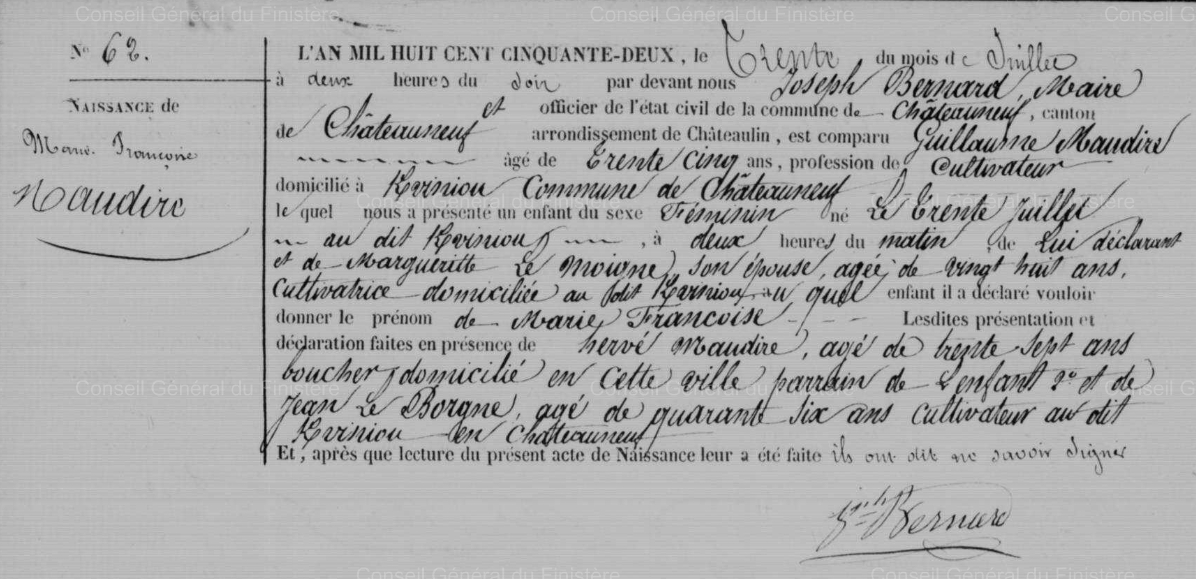 Conseil Général du Finistère
N° 62.
NAISSANCE de
Marie Françoise
Maudire
L'AN MIL HUIT CENT CINQUANTE-DEUX, le Trente du mois de Juillet
à deux heures du soir par devant nous Joseph Bernard, Maire
et officier de l'état civil de la commune de Châteauneuf, canton
de Châteauneuf arrondissement de Châteaulin, est comparu Guillaume Maudire
âgé de trente cinq ans, profession de Cultivateur
domicilié à Kviniou Commune de Châteauneuf
le quel nous a présenté un enfant du sexe Féminin né Le trente Juillet
au dit Kviniou, à deux heures du matin, de Lui déclarant
et de Margueritte Le Moigne, son épouse, agée de vingt huit ans,
Cultivatrice domiciliée au dit Kviniou, au quel enfant il a déclaré vouloir
donner le prénom de Marie Francoise Lesdites présentation et
déclaration faites en présence de hervé Maudire, agé de trente sept ans
boucher, domicilié en cette ville parrain de L'enfant 2° et de
Jean Le Borgne, agé de quarante six ans cultivateur au dit
Kviniou en Châteauneuf
Et, après que lecture du présent acte de Naissance leur a été faite ils ont dit ne savoir signer
Jph Bernard